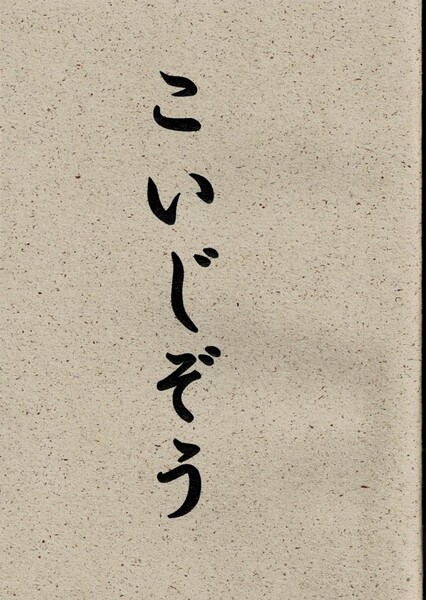 こいじぞう